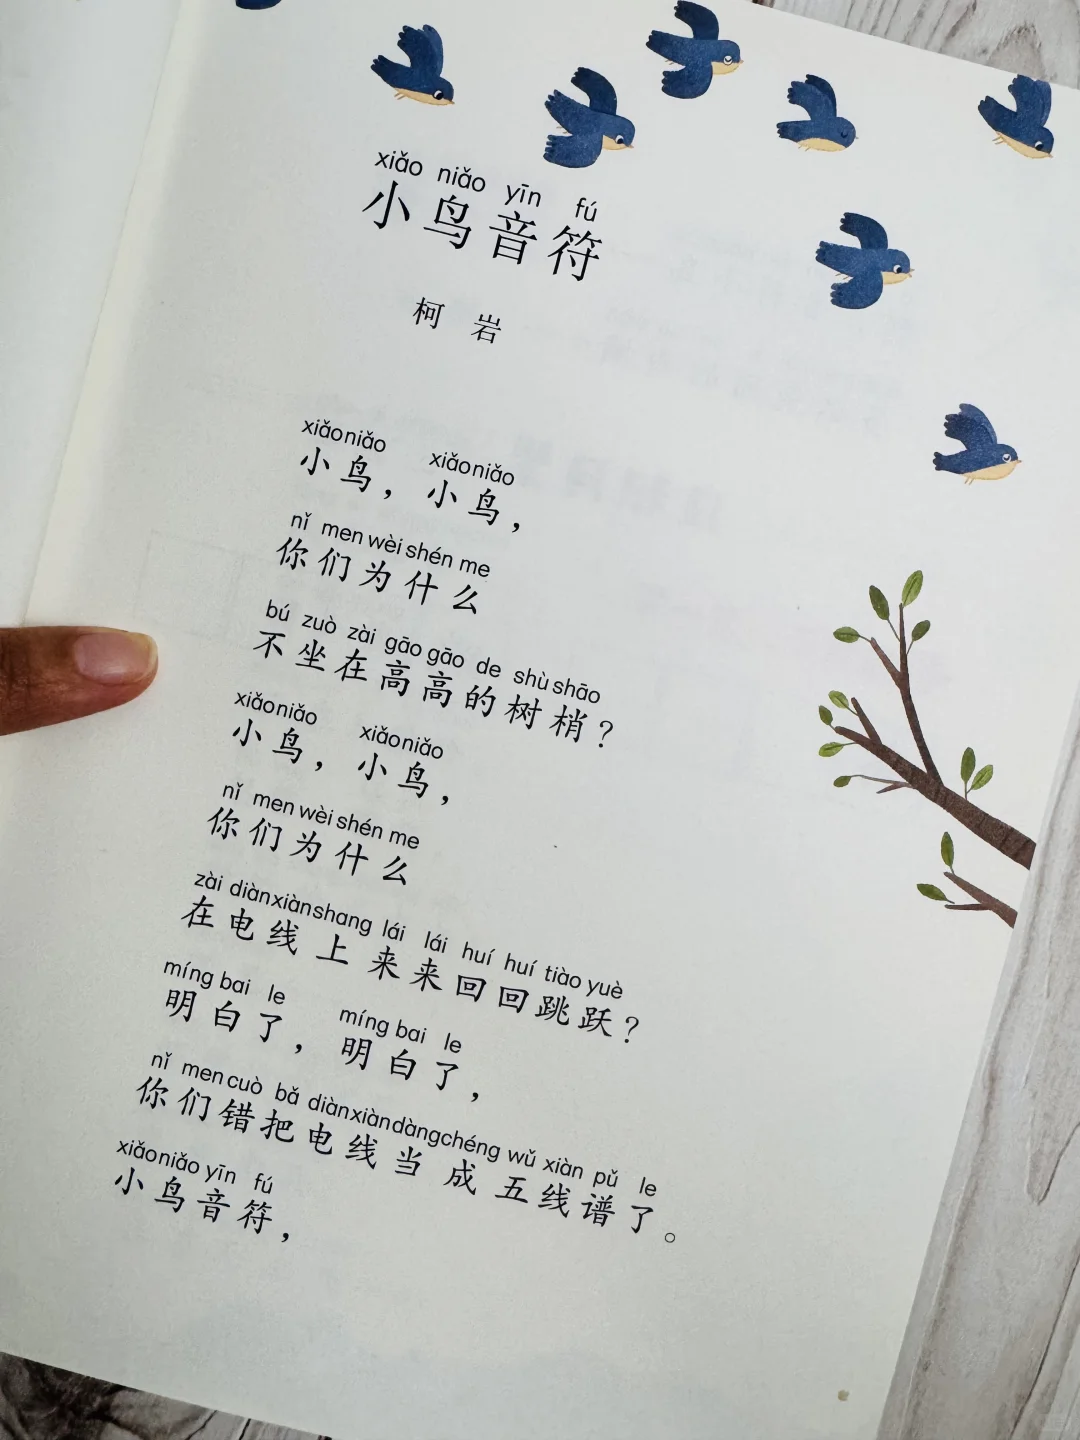 xiǎo niǎo yīn fú
小鸟音符
柯 岩
xiǎo niǎo xiǎo niǎo
小鸟，小鸟，
nǐ men wèi shén me
你们为什么
bú zuò zài gāo gāo de shù shāo
不坐在高高的树梢？
xiǎo niǎo xiǎo niǎo
小鸟，小鸟，
nǐ men wèi shén me
你们为什么
zài diàn xiàn shang lái lái huí huí tiào yuè
在电线上来来回回跳跃？
míng bai le míng bai le
明白了，明白了，
nǐ men cuò bǎ diàn xiàn dàng chéng wǔ xiàn pǔ le
你们错把电线当成五线谱了。
xiǎo niǎo yīn fú
小鸟音符，